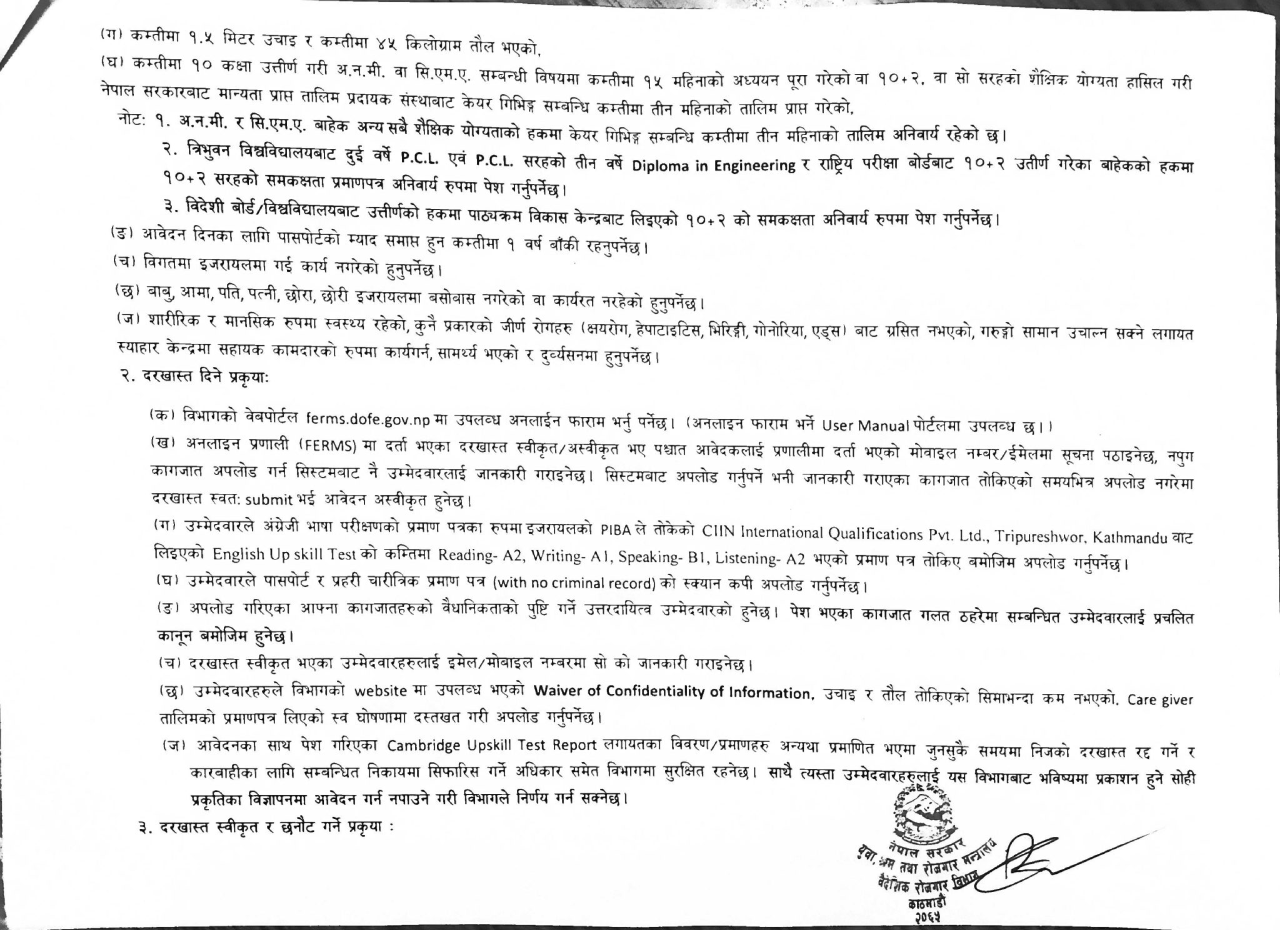 (ग) कम्तीमा १.५ मिटर उचाइ र कम्तीमा ४५ किलोग्राम तौल भएको,
(घ) कम्तीमा १० कक्षा उत्तीर्ण गरी अ.न.मी. वा सि.एम.ए. सम्बन्धी विषयमा कम्तीमा १५ महिनाको अध्ययन पूरा गरेको वा १०+२, वा सो सरहको शैक्षिक योग्यता हासिल गरी
नेपाल सरकारबाट मान्यता प्राप्त तालिम प्रदायक संस्थाबाट केयर गिभिङ्ग सम्बन्धि कम्तीमा तीन महिनाको तालिम प्राप्त गरेको,
नोट: १. अ.न.मी. र सि.एम.ए. बाहेक अन्य सबै शैक्षिक योग्यताको हकमा केयर गिभिङ्ग सम्बन्धि कम्तीमा तीन महिनाको तालिम अनिवार्य रहेको छ।
२. त्रिभुवन विश्वविद्यालयबाट दुई वर्षे P.C.L. एवं P.C.L. सरहको तीन वर्षे Diploma in Engineering र राष्ट्रिय परीक्षा बोर्डबाट १०+२ उतीर्ण गरेका बाहेकको हकमा
१०+२ सरहको समकक्षता प्रमाणपत्र अनिवार्य रुपमा पेश गर्नुपर्नेछ।
३. विदेशी बोर्ड/विश्वविद्यालयबाट उत्तीर्णको हकमा पाठ्यक्रम विकास केन्द्रबाट लिइएको १०+२ को समकक्षता अनिवार्य रुपमा पेश गर्नुपर्नेछ।
(ङ) आवेदन दिनका लागि पासपोर्टको म्याद समाप्त हुन कम्तीमा १ वर्ष बाँकी रहनुपर्नेछ।
(च) विगतमा इजरायलमा गई कार्य नगरेको हुनुपर्नेछ।
(छ) बाबु, आमा, पति, पत्नी, छोरा, छोरी इजरायलमा बसोबास नगरेको वा कार्यरत नरहेको हुनुपर्नेछ।
(ज) शारीरिक र मानसिक रुपमा स्वस्थ्य रहेको, कुनै प्रकारको जीर्ण रोगहरु (क्षयरोग, हेपाटाइटिस, भिरिङ्गी, गोनोरिया, एड्स) बाट ग्रसित नभएको, गरुङ्गो सामान उचाल्न सक्ने लगायत
स्याहार केन्द्रमा सहायक कामदारको रुपमा कार्यगर्न, सामर्थ्य भएको र दुर्व्यसनमा हुनुपर्नेछ।
२. दरखास्त दिने प्रकृया:
(क) विभागको वेबपोर्टल ferms.dofe.gov.np मा उपलव्ध अनलाईन फाराम भर्नु पर्नेछ। (अनलाइन फाराम भर्ने User Manual पोर्टलमा उपलव्ध छ।)
(ख) अनलाइन प्रणाली (FERMS) मा दर्ता भएका दरखास्त स्वीकृत/अस्वीकृत भए पश्चात आवेदकलाई प्रणालीमा दर्ता भएको मोवाइल नम्बर/ईमेलमा सूचना पठाइनेछ, नपुग
कागजात अपलोड गर्न सिस्टमबाट नै उम्मेदवारलाई जानकारी गराइनेछ। सिस्टमबाट अपलोड गर्नुपर्ने भनी जानकारी गराएका कागजात तोकिएको समयभित्र अपलोड नगरेमा
दरखास्त स्वत: submit भई आवेदन अस्वीकृत हुनेछ।
(ग) उम्मेदवारले अंग्रेजी भाषा परीक्षणको प्रमाण पत्रका रुपमा इजरायलको PIBA ले तोकेको CIIN International Qualifications Pvt. Ltd., Tripureshwor, Kathmandu बाट
लिइएको English Up skill Test को कम्तिमा Reading- A2, Writing- A1, Speaking- B1, Listening- A2 भएको प्रमाण पत्र तोकिए बमोजिम अपलोड गर्नुपर्नेछ।
(घ) उम्मेदवारले पासपोर्ट र प्रहरी चारीत्रिक प्रमाण पत्र (with no criminal record) को स्क्यान कपी अपलोड गर्नुपर्नेछ।
(ङ) अपलोड गरिएका आफ्ना कागजातहरुको वैधानिकताको पुष्टि गर्ने उत्तरदायित्व उम्मेदवारको हुनेछ। पेश भएका कागजात गलत ठहरेमा सम्बन्धित उम्मेदवारलाई प्रचलित
कानून बमोजिम हुनेछ।
(च) दरखास्त स्वीकृत भएका उम्मेदवारहरुलाई इमेल/मोबाइल नम्बरमा सो को जानकारी गराइनेछ।
(छ) उम्मेदवारहरुले विभागको website मा उपलव्ध भएको Waiver of Confidentiality of Information, उचाइ र तौल तोकिएको सिमाभन्दा कम नभएको, Care giver
तालिमको प्रमाणपत्र लिएको स्व घोषणामा दस्तखत गरी अपलोड गर्नुपर्नेछ।
(ज) आवेदनका साथ पेश गरिएका Cambridge Upskill Test Report लगायतका विवरण/प्रमाणहरु अन्यथा प्रमाणित भएमा जुनसुकै समयमा निजको दरखास्त रद्द गर्ने र
कारवाहीका लागि सम्बन्धित निकायमा सिफारिस गर्ने अधिकार समेत विभागमा सुरक्षित रहनेछ। साथै त्यस्ता उम्मेदवारहरुलाई यस विभागबाट भविष्यमा प्रकाशन हुने सोही
प्रकृतिका विज्ञापनमा आवेदन गर्न नपाउने गरी विभागले निर्णय गर्न सक्नेछ।
३. दरखास्त स्वीकृत र छनौट गर्ने प्रकृया :
नेपाल सरकार
युवा, श्रम तथा रोजगार मन्त्रालय
वैदेशिक रोजगार विभाग
काठमाडौं
२०६५